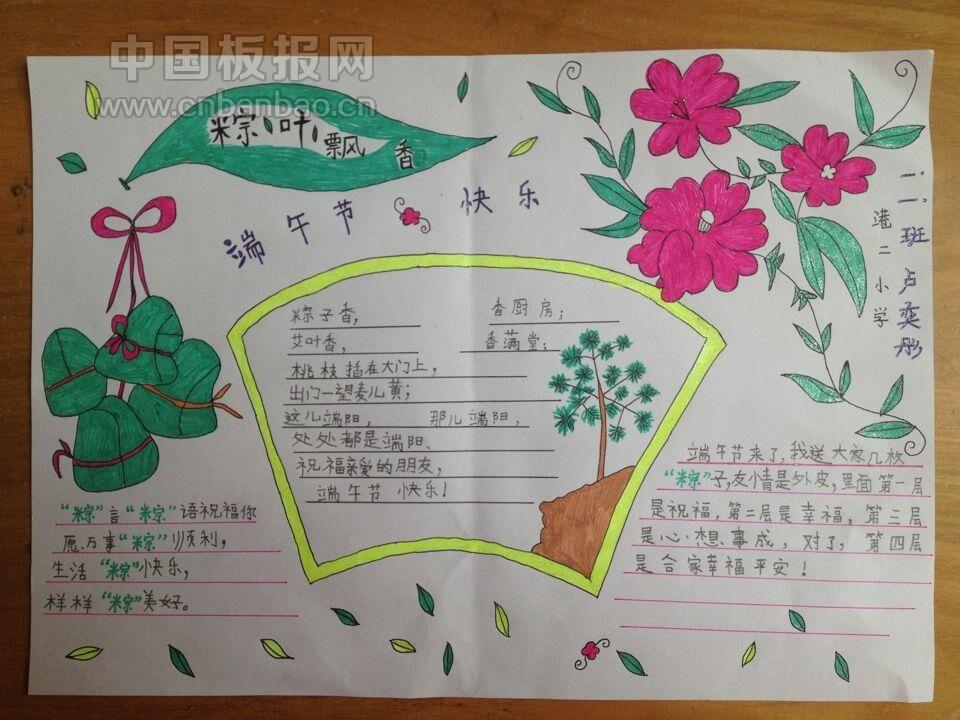 中国板报网
www.cnbanbao.cn
粽叶飘香
端午节快乐
二二班 卢奕彤
港二小学
粽子香， 香厨房；
艾叶香， 香满堂；
桃枝插在大门上，
出门一望麦儿黄；
这儿端阳， 那儿端阳，
处处都是端阳、
祝福亲爱的朋友，
端午节 快乐！
“粽”言“粽”语祝福你
愿万事“粽”顺利，
生活“粽”快乐，
样样“粽”美好。
端午节来了，我送大家几枚
“粽”子，友情是外皮，里面第一层
是祝福，第二层是幸福，第三层
是心想事成，对了，第四层
是合家幸福平安！